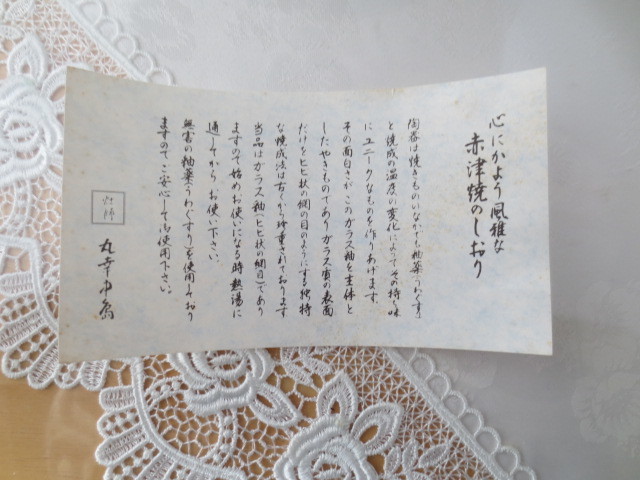 心にかよう風雅な
赤津焼のしおり
陶器は焼きものいなかでも釉薬(うわぐすり)
と焼成の温度の変化によってその持ち味
にユニークなものを作りあげます。
その面白さがこのガラス釉を主体と
したやきものでありガラス質の表面
だけをヒビ状の網の目のようにする独特
な焼成法は古くから珍重されております
当品はガラス釉(ヒビ状の網目)であり
ますので始めお使いになる時熱湯に
通してからお使い下さい。
無害の釉薬(うわぐすり)を使用しており
ますのでご安心して御使用下さい。
丸幸